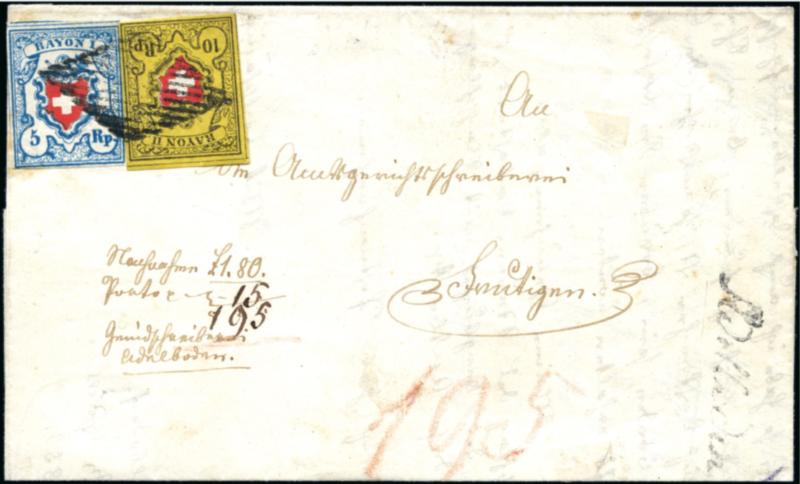 RAYON I
5 Rp.
10 Rp.
RAYON II
An
die Amtsgerichtsschreiberei
Frutigen.
Nachnahme £1.80.
Porto " " 15
195
Gemeindschreiberei
Adelboden.
195